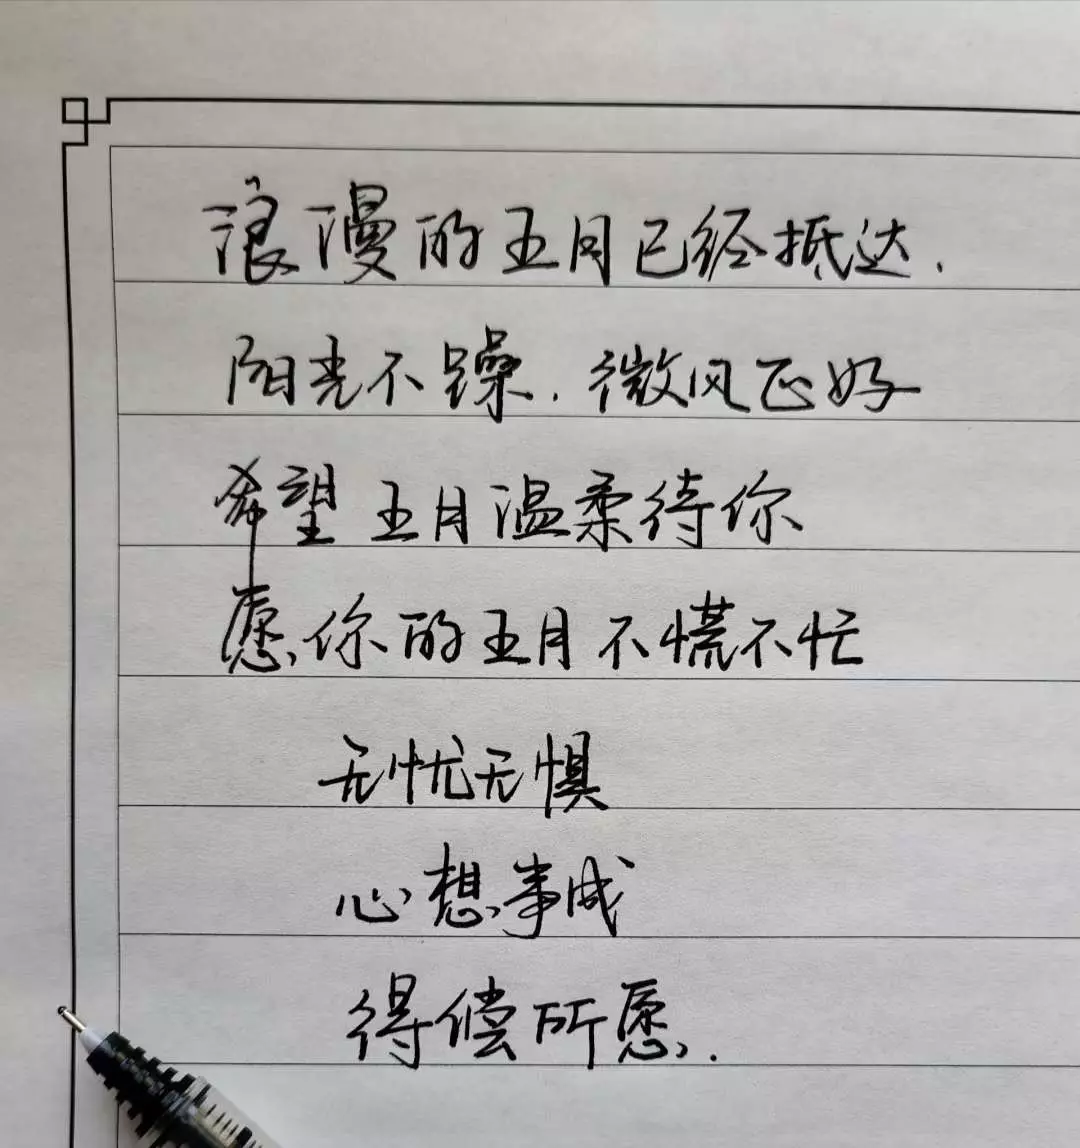 浪漫的五月已经抵达.
阳光不躁.微风正好
希望五月温柔待你
愿你的五月不慌不忙
无忧无惧
心想事成
得偿所愿.